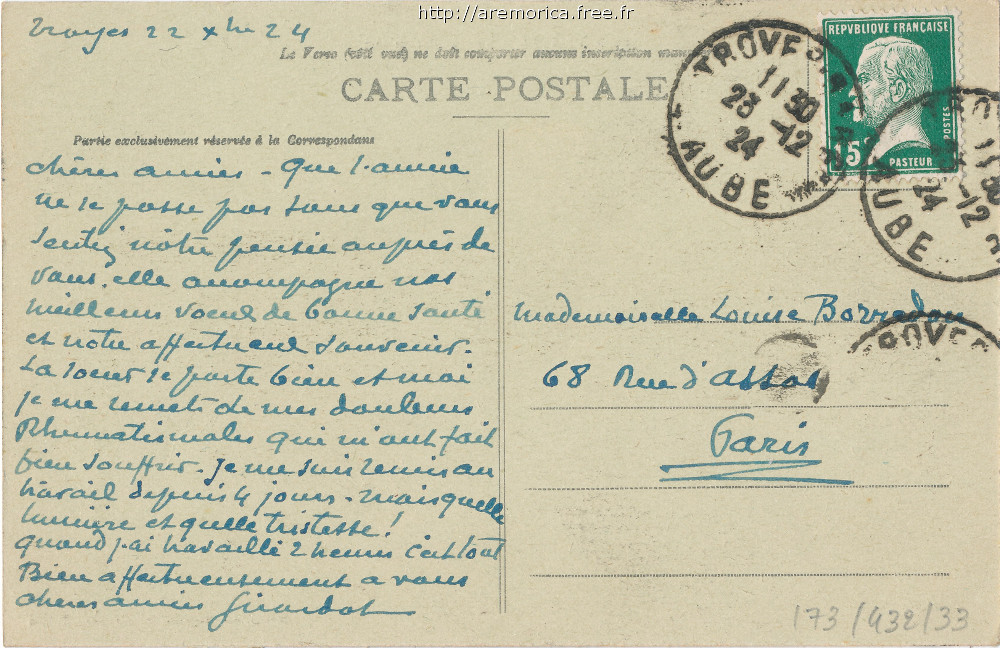 http://aremorica.free.fr
Troyes 22 Xbre 24
Le Verso (côté vue) ne doit comporter aucune inscription
CARTE POSTALE
Partie exclusivement réservée à la Correspondance
chères amies - Que l'année
ne se passe pas sans que vous
sentiez notre pensée auprès de
vous. elle accompagne nos
meilleurs voeux de bonne santé
et notre affectueux souvenir.
La soeur se porte bien et moi
je me remets de mes douleurs
Rhumatismales qui m'ont fait
bien souffrir. Je me suis remis au
travail depuis 4 jours - mais quelle
lumière et quelle tristesse!
quand j'ai travaillé 2 heures c'est tout
Bien affectueusement a vous
chères amies Girardot
TROYES
11 30
23 -12
24
AUBE
REPUBLIQUE FRANÇAISE
POSTES
15c
PASTEUR
TROYES
11 30
-12
24
AUBE
TROYES
Mademoiselle Louise
68 Rue d'Assas
Paris
173/432/33